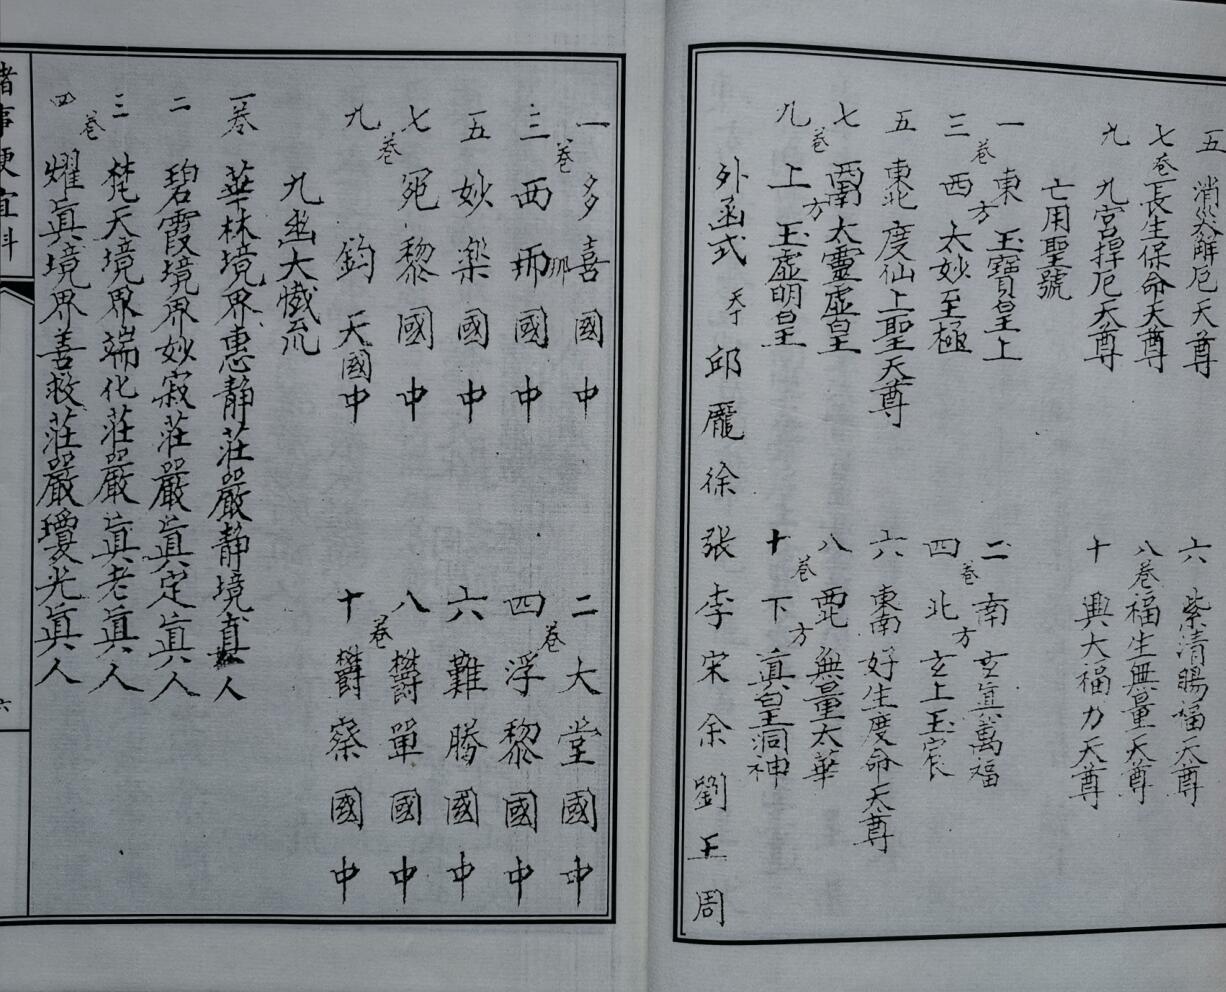 五 消災解厄天尊 六 紫清賜福天尊
七 卷 長生保命天尊 八 卷 福生無量天尊
九 九宮捍厄天尊 十 興大福力天尊
亡用聖號
一 東 玉寶皇上 二 南 玄真萬福
卷 方 卷 方
三 西 太妙至極 四 北 玄上玉宸
五 東北 度仙上聖天尊 六 東南 好生度命天尊
七 西南 太靈虛皇 八 西北 無量太華
卷 方 卷 方
九 上 玉虛明皇 十 下 真皇洞神
外函式 天 邱龐徐張李宋余劉王周
一 多喜國中 二 大堂國中
卷 卷
三 西那國中 四 浮黎國中
那
五 妙楽國中 六 難勝國中
七 宛黎國中 八 欝單國中
卷 卷
九 鈞天國中 十 欝察國中
九幽大懺流
一卷 華林境界惠静莊嚴静境真人
二 碧霞境界妙寂莊嚴真定真人
三 梵天境界端化莊嚴真老真人
卷
四 耀真境界善救莊嚴瓊光真人
諸事便宜科
六